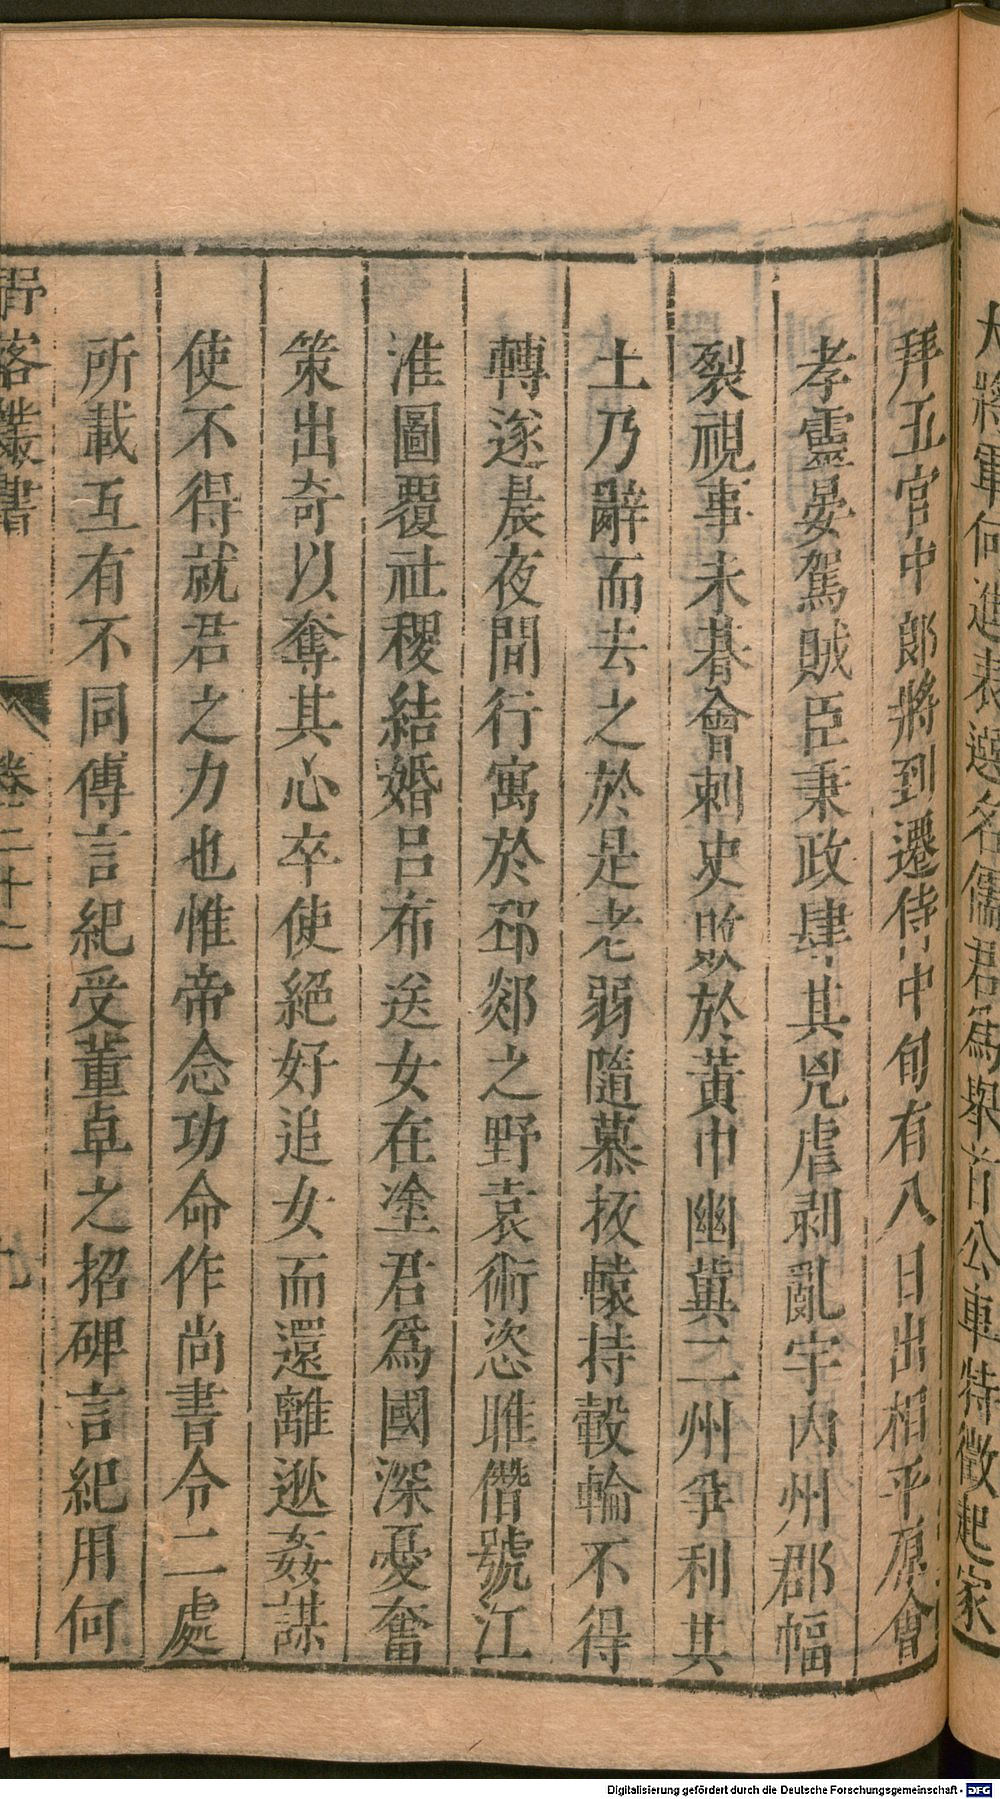 大將軍何進表選名儒君爲舉首公車特徵起家
拜五官中郎將到遷侍中旬有八日出相平原會
孝靈晏駕賊臣秉政肆其兇虐剥亂宇内州郡幅
裂視事未朞會刺史敗於黃巾幽冀二州爭利其
土乃辭而去之於是老弱隨慕扳轅持轂輪不得
轉遂晨夜間行寓於邳郯之野袁術恣睢僭號江
淮圖覆社稷結婚呂布送女在塗君爲國深憂奮
策出奇以奪其心卒使絕好追女而還離逖姦謀
使不得就君之力也惟帝念功命作尚書令二處
所載互有不同傳言紀受董卓之招碑言紀用何
卷二十二
九
Digitalisierung gefördert durch die Deutsche Forschungsgemeinschaft - DFG